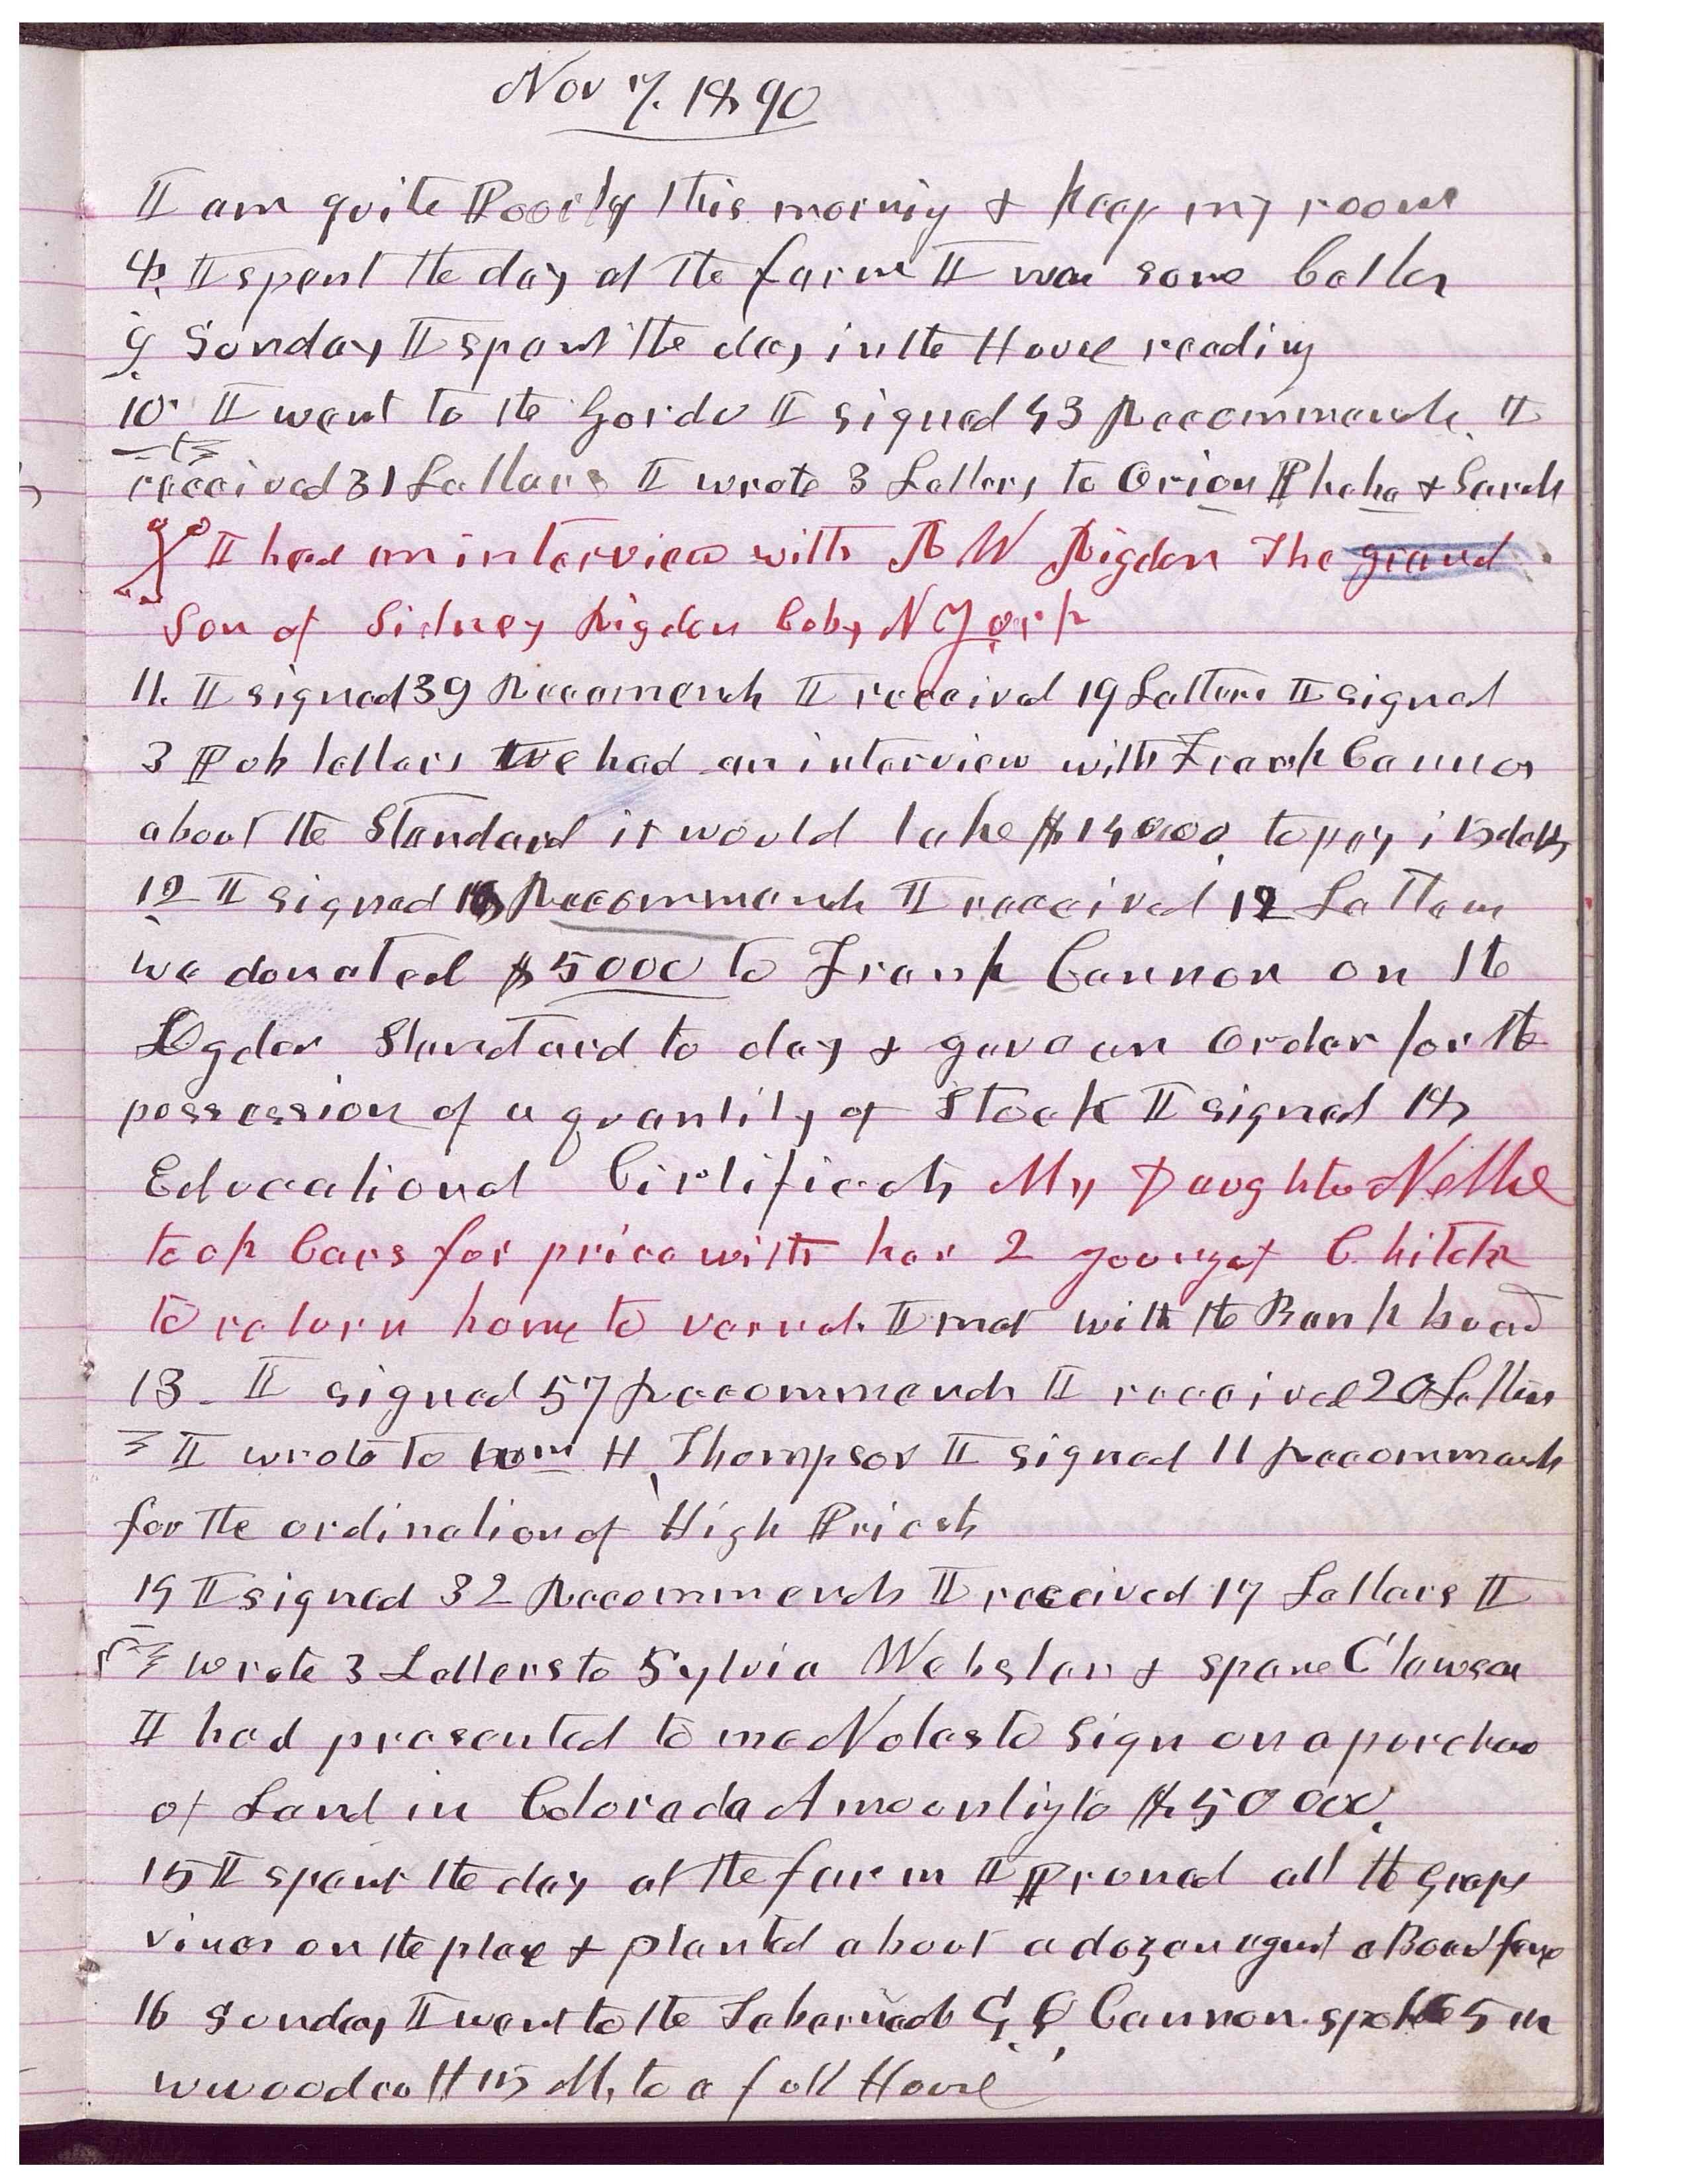 Nov 7. 1890
I am quite Poorly this morning & keep my room
8. I spent the day at the farm I was some better
9 Sunday I spent the day in the House reading
10 I went to the Gardo I signed 43 Recommends. I
received 31 Letters I wrote 3 Letters to Orion Phebe & Sarah
I had an interview with A W Rigdon The grand
Son of Sidney Rigdon Coby N York
11. I signed 39 Recomends I received 19 Letters I signed
3 Pub letters we had an interview with Frank Cannon
about the Standard it would take $14000, to pay its debts
12 I signed Recommends I received 12 Letters
we donated $5000 to Frank Cannon on the
Ogden Standard to day & gave an order for the
possession of a quantity of Stock I signed 18
Educational Cirtificats My Daughter Nellie
took Cars for price with her 2 youngest Childr
to return home to vernal. I met with the Bank board
13 - I signed 57 Recommends I received 20 Letters
I wrote to H Thompson I signed 11 Recommends
for the ordination of High Priests
14 I signed 32 Recommends I received 17 Letters I
wrote 3 Letters to Sylvia Webster & Clawson
I had presented to me Notes to Sign on a purchase
of Land in Colorada Amounting to $50000,
15 I spent the day at the farm I Pruned all the Grape
vines on the place & planted about a dozen against a Board fence
16 Sunday I went to the Tabernacle G Q Cannon spoke 5 m
W woodruff 115 M, to a full House